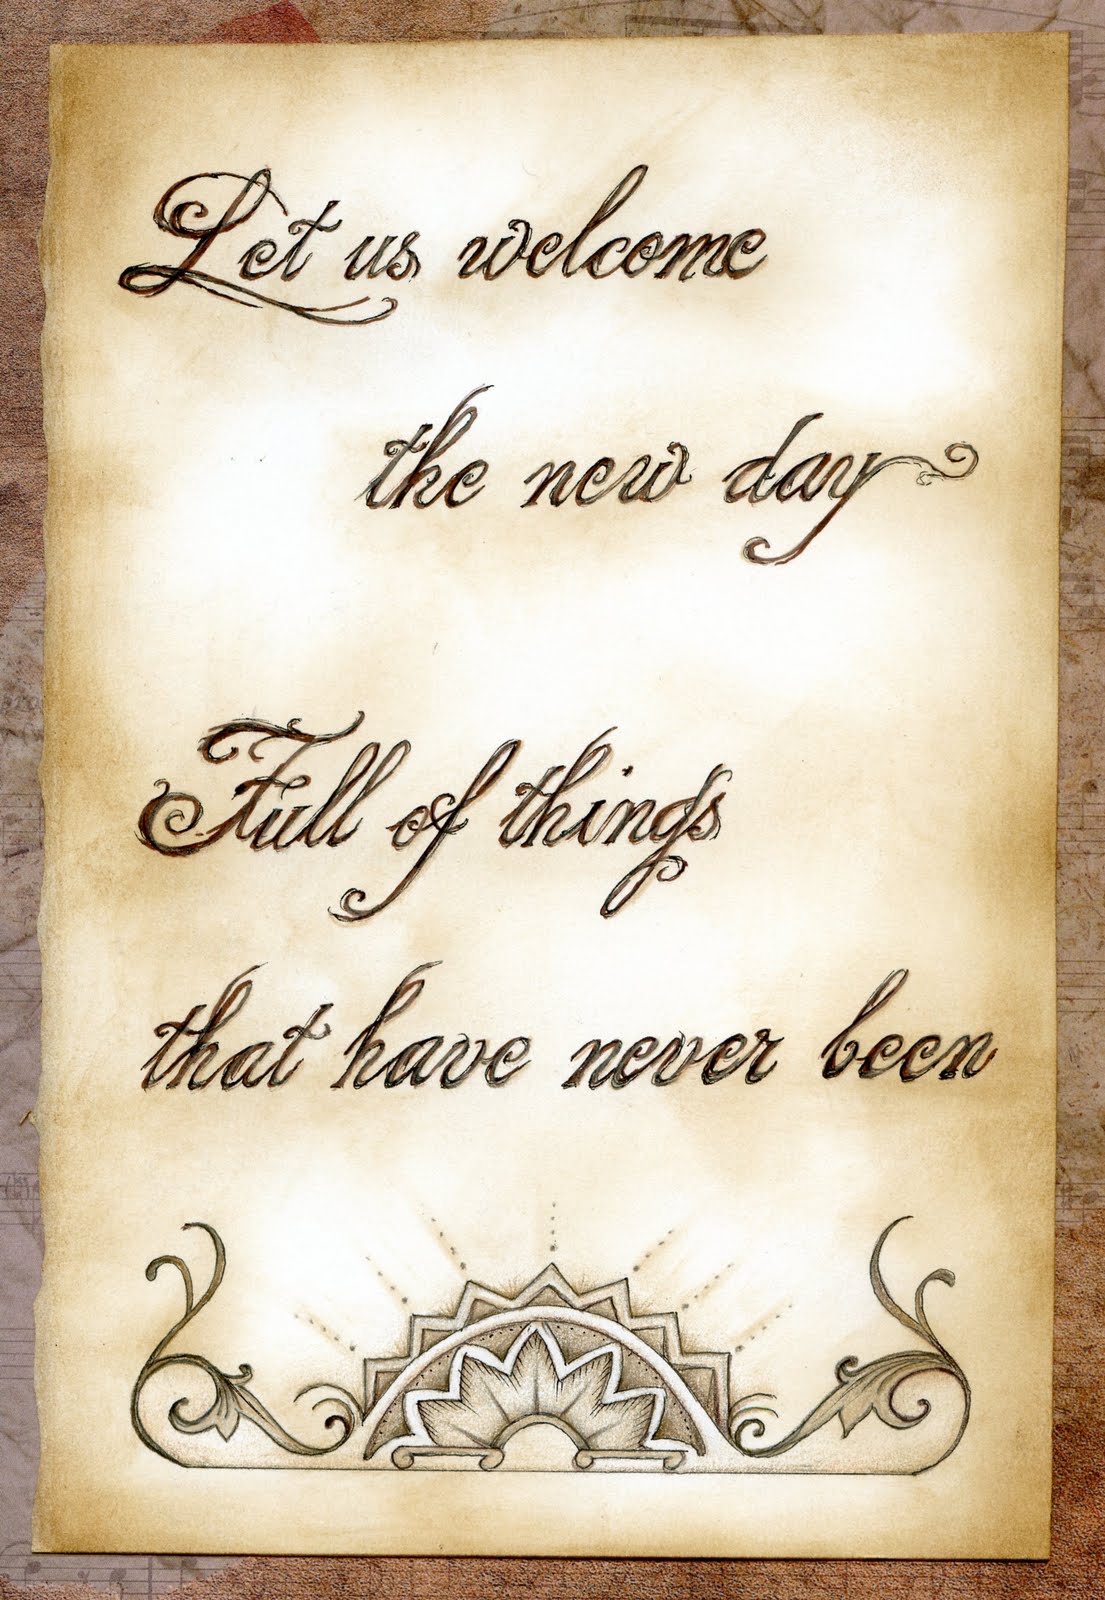 Let us welcome
the new day
Full of things
that have never been